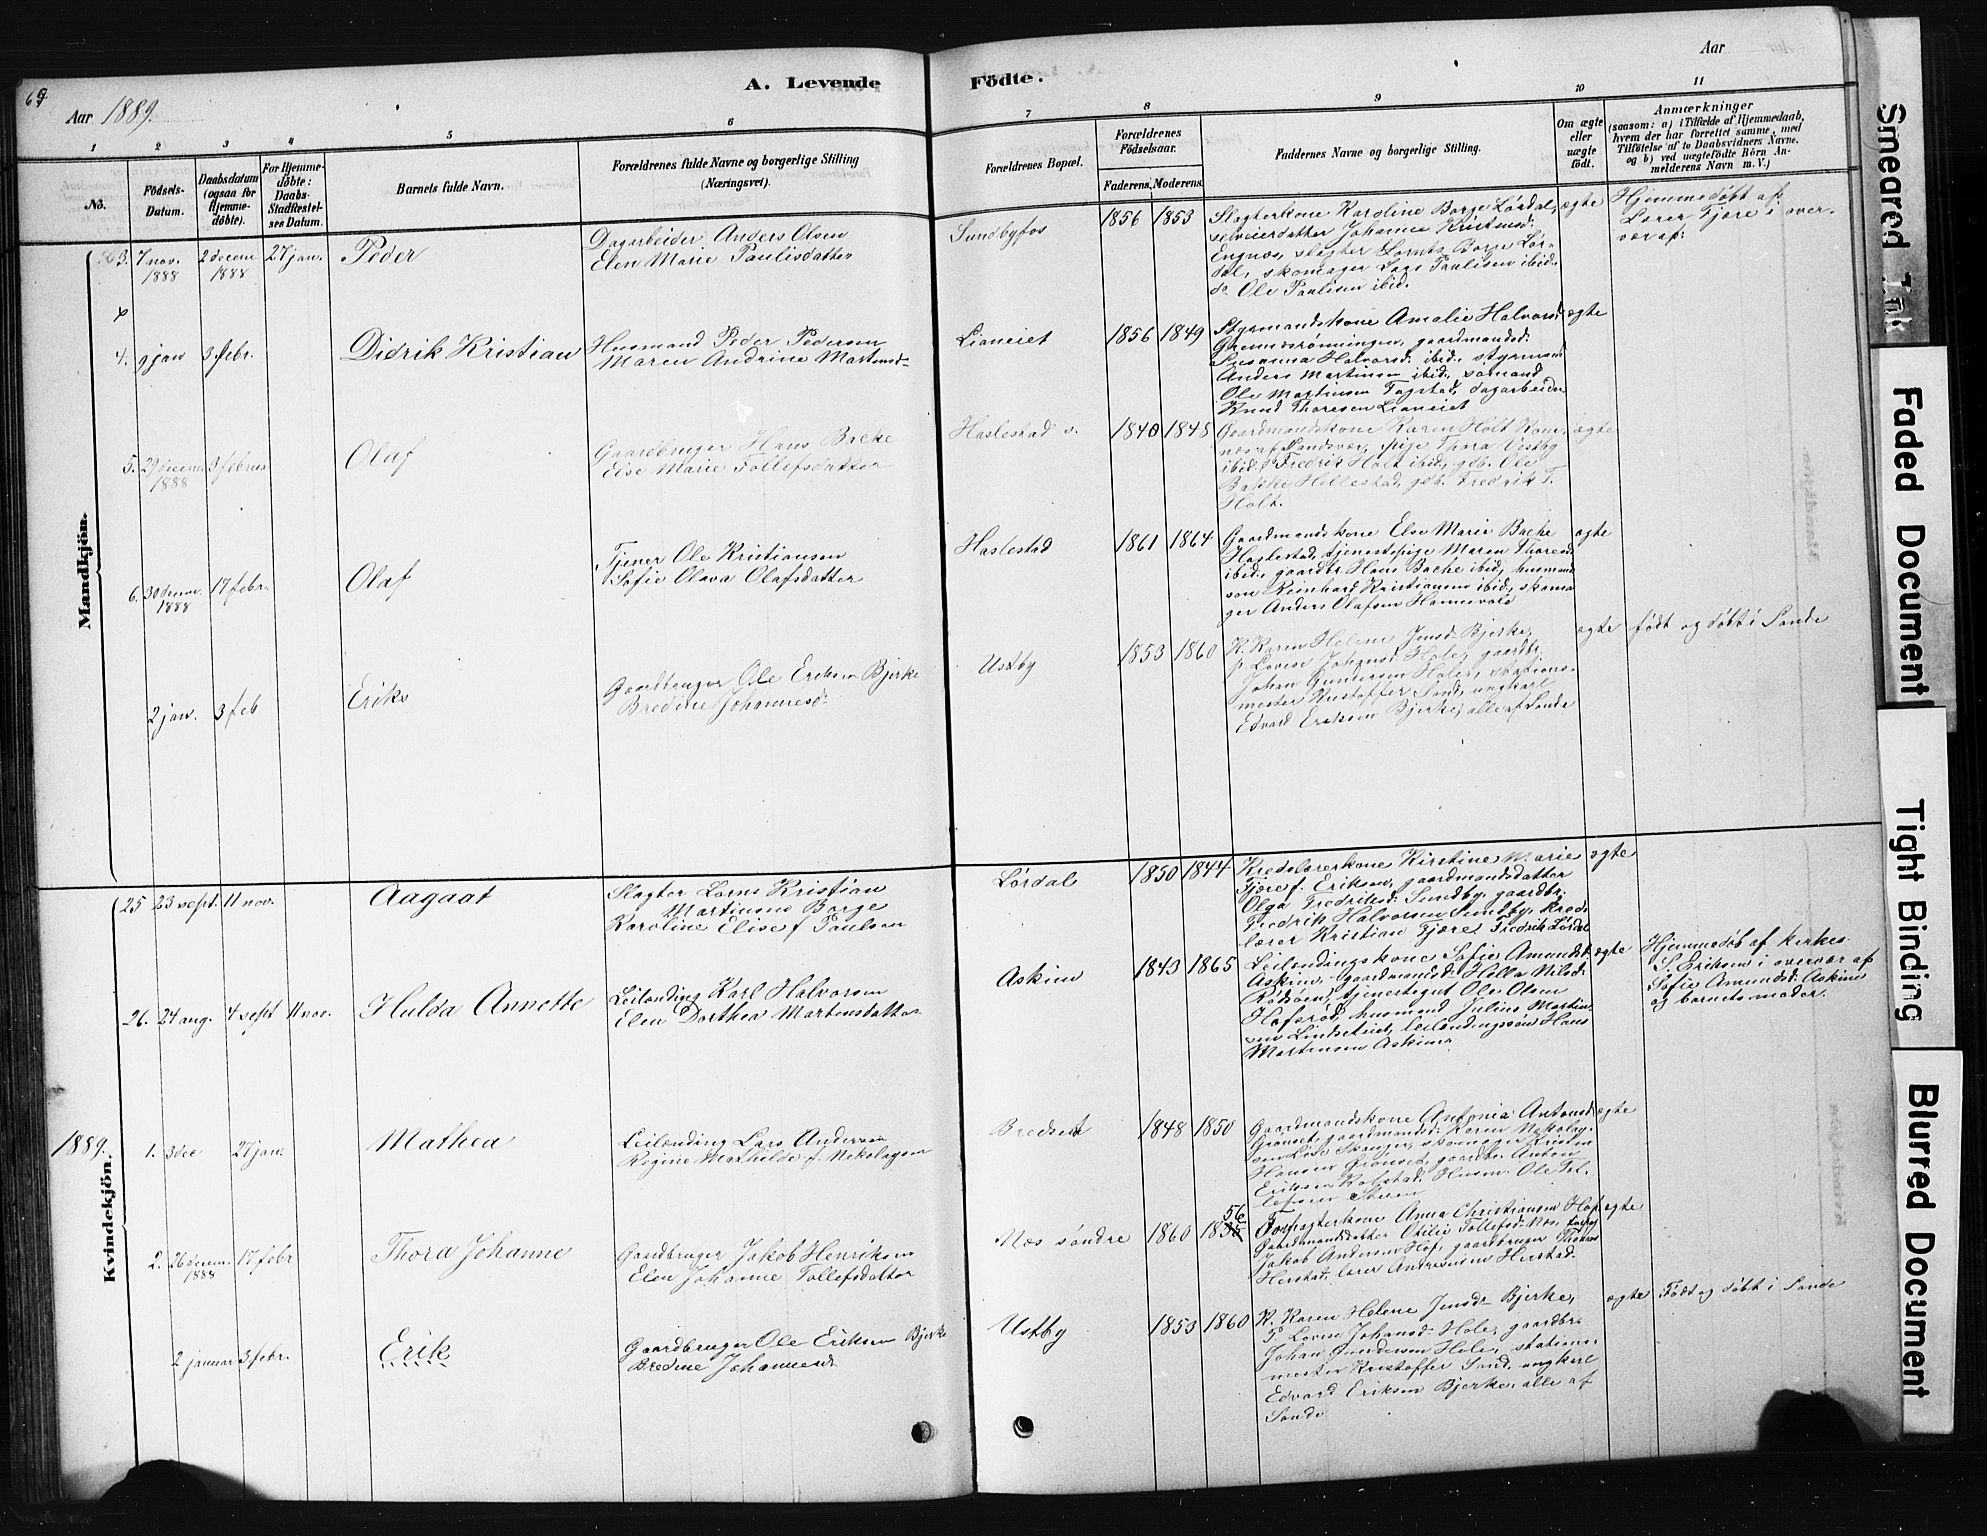 69
Aar 1889.
A. Levende Födte.
Aar
1 2 3 4 5 6 7 8 9 10 11
No.
Födsels-Datum.
Daabsdatum (ogsaa for Hjemme-döbte).
For Hjemme-döbte: Daabs-Stadfæstel-ses Datum.
Barnets fulde Navn.
Forældrenes fulde Navne og borgerlige Stilling
(Næringsvei).
Forældrenes Bopæl.
Forældrenes Födselsaar.
Faderens. Moderens.
Faddernes Navne og borgerlige Stilling.
Om ægte eller uægte födt.
Anmærkninger
(saasom: a) i Tilfælde af Hjemmedaab,
hvem der har forrettet samme, med
Tilföielse af to Daabsvidners Navne,
og b) ved uægtefödte Börn An-
melderens Navn m. V.)
Mandkjön.
3. 7 nov. 1888 2 decem 1888 27 jan. Peder
Dagarbeider Anders Olsen
Elen Marie Paulisdatter
Sundbyfos 1856 1853
Slagterkone Karoline Borge Lørdal,
selveierdatter Johanne Kristensd.
Engnæs, slagter Lornts Borge Lør-
dal, skomager Lars Paulisen ibid.
do Ole Paulisen ibid.
ægte
Hjemmedøbt af
Lærer Fjære i over-
vær af:
4. 9 jan 3 febr. Didrik Kristian
Husmand Peder Pedersen
Maren Andrine Martensd-
Lianeiet 1856 1849
Styrmandskone Amalie Halvorsd
Grennesrønningen, gaardmandsd.
Susanna Halvorsd. ibid. styrmand
Anders Martinsen ibid., sømand
Ole Martinsen Fagstad, dagarbeider
Knud Thoresen Lianeiet
ægte
5. 29 decem 1888 3 februar Olaf
Gaardbruger Hans Backe
Else Marie Tollefsdatter
Haslestad s. 1840 1848
Gaardmandskone Karen Holt Kone-
næs af Sandsvær, pige Thora Vestby
ibid, Fredrik Holt ibid, gdb. Ole
Bakke Hillestad, gdb. Fredrik T.
Holt.
ægte
6. 30 decem. 1888 17 febr. Olaf
Tjener Ole Kristiansen
Sofie Olava Olafsdatter
Haslestad 1861 1864
Gaardmandskone Else Marie Bache
Haslestad, tjenestepige Maren Thoresd
ibid, gaardbr. Hans Bache ibid, husmand
søn Reinhard Kristiansen ibid, skoma
ger Anders Olafsen Hannevold
ægte
2 jan. 3 feb Eriks
Gaardbruger Ole Eriksen Bjerke
Bredine Johannesd.
Ustby 1853 1860
K. Karen Helene Jensd. Bjerke,
p. Lovise Johansd. Hole, gaardbr.
Johan Gundersen Hole, stations-
mester Kristoffer Sand, ungkarl
Edvard Eriksen Bjerke, alle af Sande
ægte født og døbt i Sande
Kvindekjön.
25 23 sept. 11 nov. Aagaat
Slagter Lorns Kristian
Martinsen Borge
Karoline Elise f Paulsen
Lørdal 1850 1844
Kredslærerkone Kirstine Marie
Fjære f. Eriksen, gaardmandsdatter
Olga Fredriksd. Sundby, gaardbr.
Fredrik Halvorsen Sundby, Kreds-
lærer Kristian Fjære, Fredrik Lørdal
ægte
26. 24 aug. 4 sept 11 nov. Hulda Annette
Leilænding Karl Halvorsen
Elen Dorthea Martensdatter
Askim 1843 1865
Leilændingskone Sofie Amundsd.
Askim, gaardmandsd. Helle Nilsd.
Rødsøen, tjenestegut Ole Olsen
Hafsrød, husmand Julius Martin
sen Lindseteiet, leilændingssøn Hans
Martinsen Askim
ægte
Hjemmedøb af kirkes.
S. Eriksen i overvær af
Sofie Amundsd. Askim
og barnets moder.
1889. 1. 3 dec 27 jan. Mathea
Leilænding Lars Andersen
Regine Mathilde f. Nikolaysen
Bredset 1848 1850
Gaardmandskone Antonia Antonsd
Grønset, gaardmandsd. Karen Nikolay-
sen Lise Skauger, skomager Kristen
Hansen Grønset, gaardbr. Anton
Eriksen Kolstad, Husm. Ole Tol-
lefsen Steren
ægte
2. 26 decem. 1888 17 febr Thora Johanne
Gaardbruger Jakob Henriksen
Elen Johanne Tollefsdatter
Næs søndre 1860 56
Forpagterkone Anna Christiansen Hof
Gaardmandsdatter Otilie Tollefsd. Næs, forpag
Jakob Andersen Hof, gaardbruger Thomas
Herstad, lærer Andresen Herstad
ægte
2 januar 3 febr. Erik
Gaardbruger Ole Eriksen Bjerke
Bredine Johannesd.
Ustby 1853 1860
K. Karen Helene Jensdr Bjerke,
P. Lovise Johansd. Hole, gaardbr.
Johan Gundersen Hole, stations-
mester Kristoffer Sand, ungkarl
Edvard Eriksen Bjerke, alle af
Sande
ægte Født og døbt i Sande
Smeared Ink
Faded Document
Tight Binding
Blurred Document